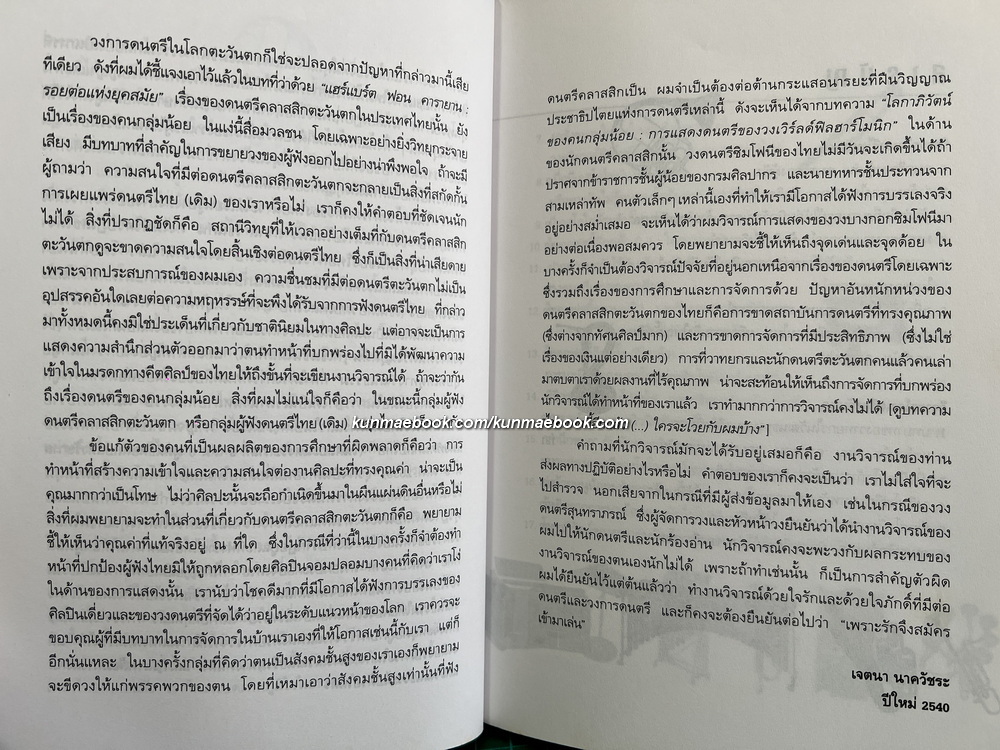 วงการดนตรีในโลกตะวันตกก็ใช่จะปลอดจากปัญหาที่กล่าวมานี้เสีย
ทีเดียว ดังที่ผมได้ชี้แจงเอาไว้แล้วในบทที่ว่าด้วย "แฮร์แบร์ต ฟอน คารายาน :
รอยต่อแห่งยุคสมัย" เรื่องของดนตรีคลาสสิกตะวันตกในประเทศไทยนั้น ยัง
เป็นเรื่องของคนกลุ่มน้อย ในแง่นี้สื่อมวลชน โดยเฉพาะอย่างยิ่งวิทยุกระจาย
เสียง มีบทบาทที่สำคัญในการขยายวงของผู้ฟังออกไปอย่างน่าพึงพอใจ ถ้าจะมี
ผู้ถามว่า ความสนใจที่มีต่อดนตรีคลาสสิกตะวันตกจะกลายเป็นสิ่งที่สกัดกั้น
การเผยแพร่ดนตรีไทย (เดิม) ของเราหรือไม่ เราก็คงให้คำตอบที่ชัดเจนนัก
ไม่ได้ สิ่งที่ปรากฏชัดก็คือ สถานีวิทยุที่ให้เวลาอย่างเต็มที่กับดนตรีคลาสสิก
ตะวันตกดูจะขาดความสนใจโดยสิ้นเชิงต่อดนตรีไทย ซึ่งก็เป็นสิ่งที่น่าเสียดาย
เพราะจากประสบการณ์ของผมเอง ความชื่นชมที่มีต่อดนตรีตะวันตกไม่เป็น
อุปสรรคอันใดเลยต่อความมหฤหรรษ์ที่จะพึงได้รับจากการฟังดนตรีไทย ที่กล่าว
มาทั้งหมดนี้คงมิใช่ประเด็นที่เกี่ยวกับชาตินิยมในทางศิลปะ แต่อาจจะเป็นการ
แสดงความสำนึกส่วนตัวออกมาว่าตนทำหน้าที่บกพร่องไปที่มิได้พัฒนาความ
เข้าใจในมรดกทางคีตศิลป์ของไทยให้ถึงขั้นที่จะเขียนงานวิจารณ์ได้ ถ้าจะว่ากัน
ถึงเรื่องของดนตรีของคนกลุ่มน้อย สิ่งที่ผมไม่แน่ใจก็คือว่า ในขณะนี้กลุ่มผู้ฟัง
ดนตรีตะวันตก หรือกลุ่มผู้ฟังดนตรีไทย (เดิม)
kunmaebook.com/kunmaebook.com
ข้อแก้ตัวของคนที่เป็นผลผลิตของการศึกษาที่ผิดพลาดก็คือว่า การ
ทำหน้าที่สร้างความเข้าใจและความสนใจต่องานศิลปะที่ทรงคุณค่า น่าจะเป็น
คุณมากกว่าเป็นโทษ ไม่ว่าศิลปะนั้นจะถือกำเนิดขึ้นมาในผืนแผ่นดินอื่นหรือไม่
สิ่งที่ผมพยายามจะทำในส่วนที่เกี่ยวกับดนตรีคลาสสิกตะวันตกก็คือ พยายาม
ชี้ให้เห็นว่าคุณค่าที่แท้จริงอยู่ ณ ที่ใด ซึ่งในกรณีที่ว่านี้ในบางครั้งก็จำต้องทำ
หน้าที่ปกป้องผู้ฟังไทยมิให้ถูกหลอกโดยศิลปินจอมปลอมบางคนที่คิดว่าเราโง่
ในด้านของการแสดงนั้น เรานับว่าโชคดีมากที่มีโอกาสได้ฟังการบรรเลงของ
ศิลปินเดี่ยวและของวงดนตรีที่จัดได้ว่าอยู่ในระดับแนวหน้าของโลก เราควรจะ
ขอบคุณผู้ที่มีบทบาทในการจัดการในบ้านเราเองที่ให้โอกาสเช่นนี้กับเรา แต่ก็
อีกนั่นแหละ ในบางครั้งกลุ่มที่คิดว่าตนเป็นสังคมชั้นสูงของเราเองก็พยายาม
จะขีดวงให้แก่พรรคพวกของตน โดยที่เหมาเอาว่าสังคมชั้นสูงเท่านั้นที่ฟัง
ดนตรีคลาสสิกเป็น ผมจำเป็นต้องต่อต้านกระแสอนารยะที่ฝืนวิญญาณ
ประชาธิปไตยแห่งการดนตรีเหล่านี้ ดังจะเห็นได้จากบทความ "โลกาภิวัตน์
ของคนกลุ่มน้อย : การแสดงดนตรีของวงเวิร์ลด์ฟิลฮาร์โมนิก" ในด้าน
ของนักดนตรีคลาสสิกนั้น วงดนตรีซิมโฟนีของไทยไม่มีวันจะเกิดขึ้นได้ถ้า
ปราศจากข้าราชการชั้นผู้น้อยของกรมศิลปากร และนายทหารชั้นประทวนจาก
สามเหล่าทัพ คนตัวเล็กๆ เหล่านี้เองที่ทำให้เรามีโอกาสได้ฟังการบรรเลงจริง
อยู่อย่างสม่ำเสมอ จะเห็นได้ว่าผมวิจารณ์การแสดงของวงบางกอกซิมโฟนีมา
อย่างต่อเนื่องพอสมควร โดยพยายามจะชี้ให้เห็นถึงจุดเด่นและจุดด้อย ใน
บางครั้งก็จำเป็นต้องวิจารณ์ปัจจัยที่อยู่นอกเหนือจากเรื่องของดนตรีโดยเฉพาะ
ซึ่งรวมถึงเรื่องของการศึกษาและการจัดการด้วย ปัญหาอันหนักหน่วงของ
ดนตรีคลาสสิกตะวันตกของไทยก็คือการขาดสถาบันการดนตรีที่ทรงคุณภาพ
(ซึ่งต่างจากทัศนศิลป์มาก) และการขาดการจัดการที่มีประสิทธิภาพ (ซึ่งไม่ใช่
เรื่องของเงินแต่อย่างเดียว) การที่วาทยกรและนักดนตรีตะวันตกคนแล้วคนเล่า
มาตบตาเราด้วยผลงานที่ไร้คุณภาพ น่าจะสะท้อนให้เห็นถึงการจัดการที่บกพร่อง
นักวิจารณ์ได้ทำหน้าที่ของเราแล้ว เราทำมากกว่าการวิจารณ์คงไม่ได้ [ดูบทความ
(...) ใครจะโวยกับผมบ้าง"]
คำถามที่นักวิจารณ์มักจะได้รับอยู่เสมอก็คือ งานวิจารณ์ของท่าน
ส่งผลทางปฏิบัติอย่างไรหรือไม่ คำตอบของเราก็คงจะเป็นว่า เราไม่ใส่ใจที่จะ
ไปสำรวจ นอกเสียจากในกรณีที่มีผู้ส่งข้อมูลมาให้เอง เช่นในกรณีของวง
ดนตรีสุนทราภรณ์ ซึ่งผู้จัดการวงและหัวหน้าวงยืนยันว่าได้นำงานวิจารณ์ของ
ผมไปให้นักดนตรีและนักร้องอ่าน นักวิจารณ์คงจะพะวงกับผลกระทบของ
งานวิจารณ์ของตนเองนักไม่ได้ เพราะถ้าทำเช่นนั้น ก็เป็นการสำคัญตัวผิด
ผมได้ยืนยันไว้แต่ต้นแล้วว่า ทำงานวิจารณ์ด้วยใจรักและด้วยใจภักดิ์ที่มีต่อ
ดนตรีและวงการดนตรี และก็คงจะต้องยืนยันต่อไปว่า "เพราะรักจึงสมัคร
เข้ามาเล่น"
เจตนา นาควัชระ
ปีใหม่ 2540